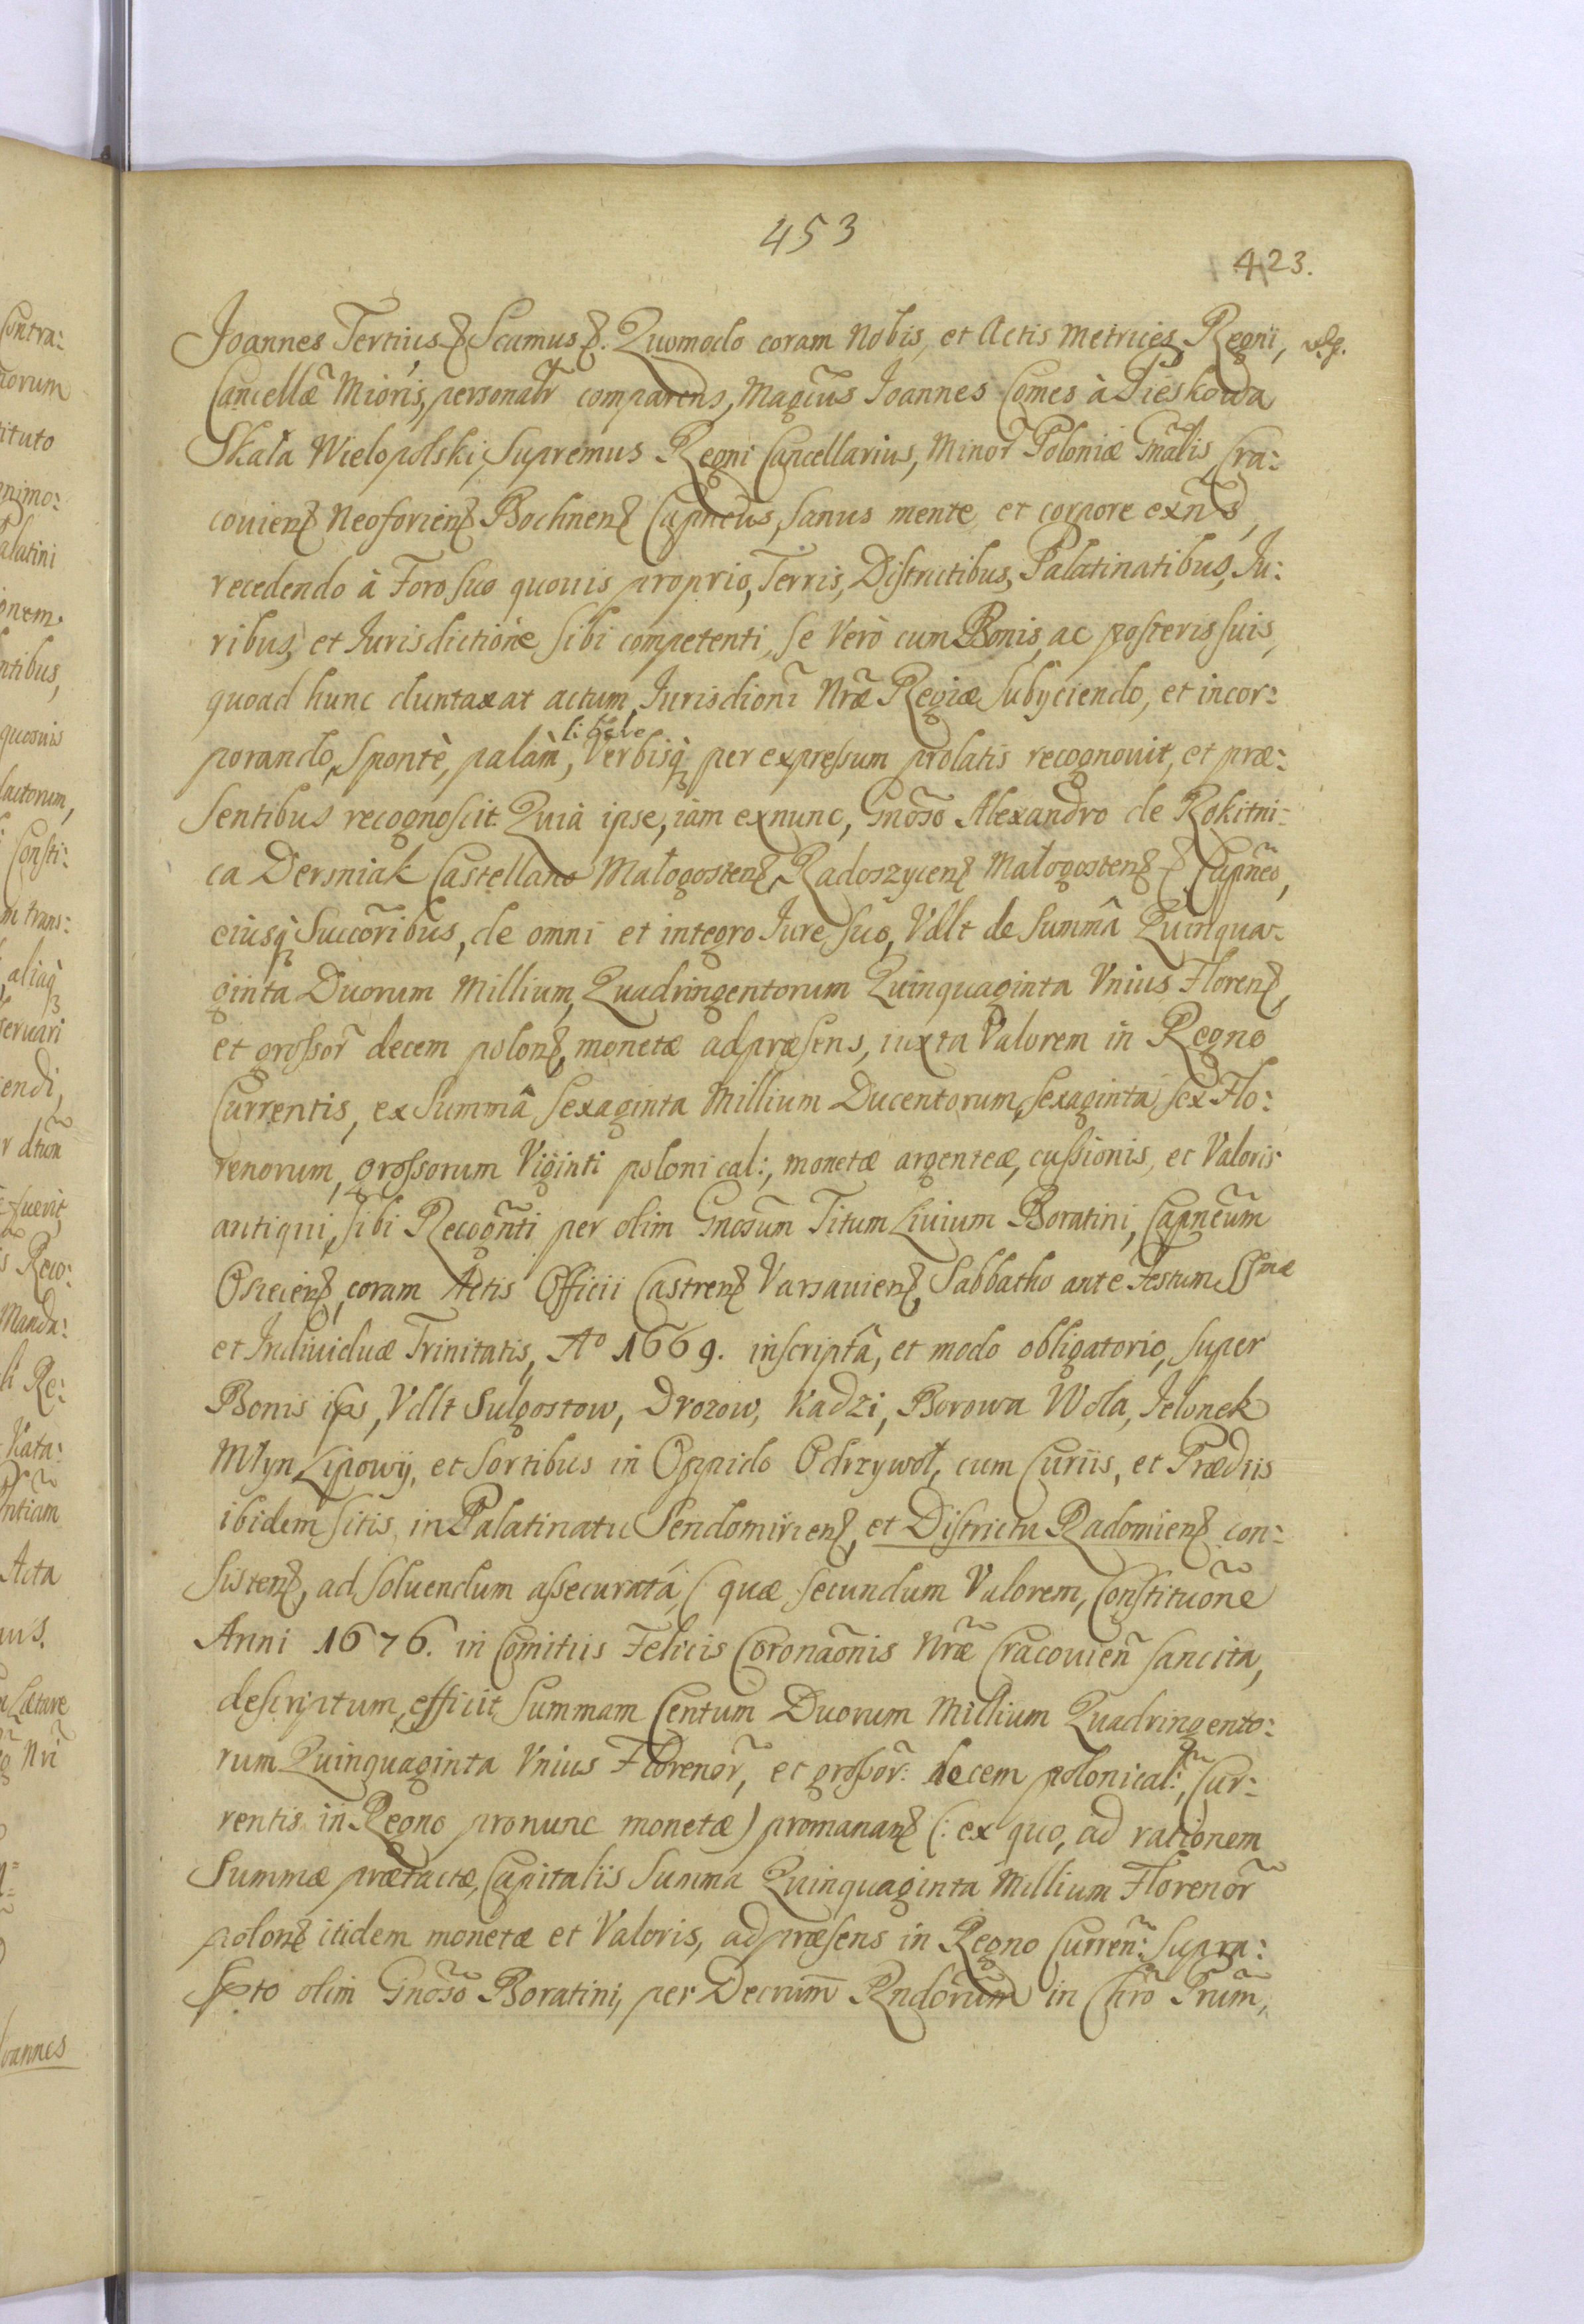 453
423.
Joannes Tertius & Scimus &. Quomodo coram Nobis, et Actis Metrices Regni,
Cancellæ Mioris, personalr comparens, Magcus Joannes Comes à Pieskowa
Skała Wielopolski, Supremus Regni Cancellarius, Minor Poloniæ Gnalis, Cra:
couien Neoforien Bochnen Capneus, sanus mente et corpore exns,
recedendo à Foro suo quouis proprio, Terris, Districtibus, Palatinatibus, Iu:
ribus, et Jurisdictione sibi competenti, se verò cum Bonis, ac posteris suis,
quoad hunc duntaxat actum, Jurisdioni Nræ Regiæ Subyciendo, et incor:
porando, Spontè, palàm, libere Verbisq per expressum prolatis recognouit, et præ:
sentibus recognoscit. Quià ipse, iam exnunc, Gnoso Alexandro de Rokitni-
ca Dersniak Castellano Małogosten, Radoszycen Małogosten & Capneo,
eiusq Succoribus, de omni et integro Jure suo, Vdlt de Summâ Quinqua-
ginta Duorum Millium, Quadringentorum Quinquaginta Vnius Floren,
et grossor decem polon, monetæ adpræsens, iuxta Valorem in Regno
Currentis, ex Summâ Sexaginta Millium Ducentorum, Sexaginta sex Flo:
renorum, grossorum Viginti polonical:, monetæ argenteæ, cussionis, et Valoris
antiqui, sibi Recognti per olim Gnosum Titum Liuium Boratini, Capneum
Osiecien, coram Actis Officii Castren Varsauien, Sabbatho ante Festum SSmæ
et Indiuiduæ Trinitatis, Ao 1669. inscriptâ, et modo obligatorio, super
Bonis ips, Vdlt Sulgostow, Drozow, Kadzi, Borowa Wola, Jelonek
Młyn Lipowy, et Sortibus in Oppido Odrzywoł, cum Curiis, et Prædiis
ibidem sitis, in Palatinatu Sendomirien, et Districtu Radomien con:
sisten, ad soluendum assecuratâ, (: quæ secundum Valorem, Constituone
Anni 1676. in Comitiis Felicis Coronaonis Nræ Cracouien sancita,
descriptum, efficit Summam Centum Duorum Millium Quadringento:
rum Quinquaginta Vnius Florenor, et grossor: decem polonical:, Cur:
rentis in Regno pronunc monetæ) promanan (: ex quo, ad rationem
Summæ prætactæ, Capitalis Summa Quinquaginta Millium Florenor
polon itidem monetæ et Valoris, adpræsens in Regno Curren: supra:
spto olim Gnoso Boratini, per Decrum Rndorum in Chro Prum,